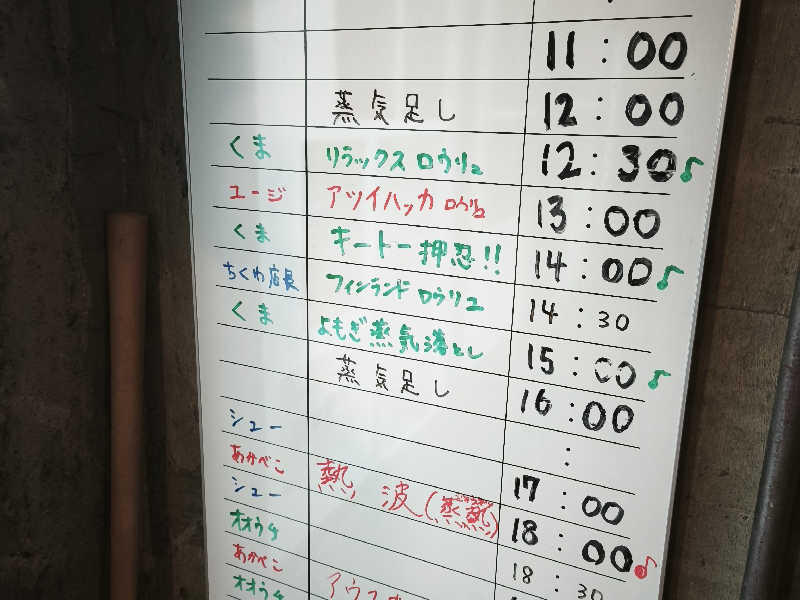 11:00
蒸気足し 12:00
くま リラックス ロウリュ 12:30♪
ユージ アツイハッカ ロウリュ 13:00
くま キートー押忍!! 14:00♪
ちくわ店長 フィンランド ロウリュ 14:30
くま よもぎ蒸気落とし 15:00♪
蒸気足し 16:00
:
シュー
あかべこ 熱波(蒸熱) 17:00
シュー 18:00♪
オオウチ 18:30
あかべこ アウフ
オオウチ